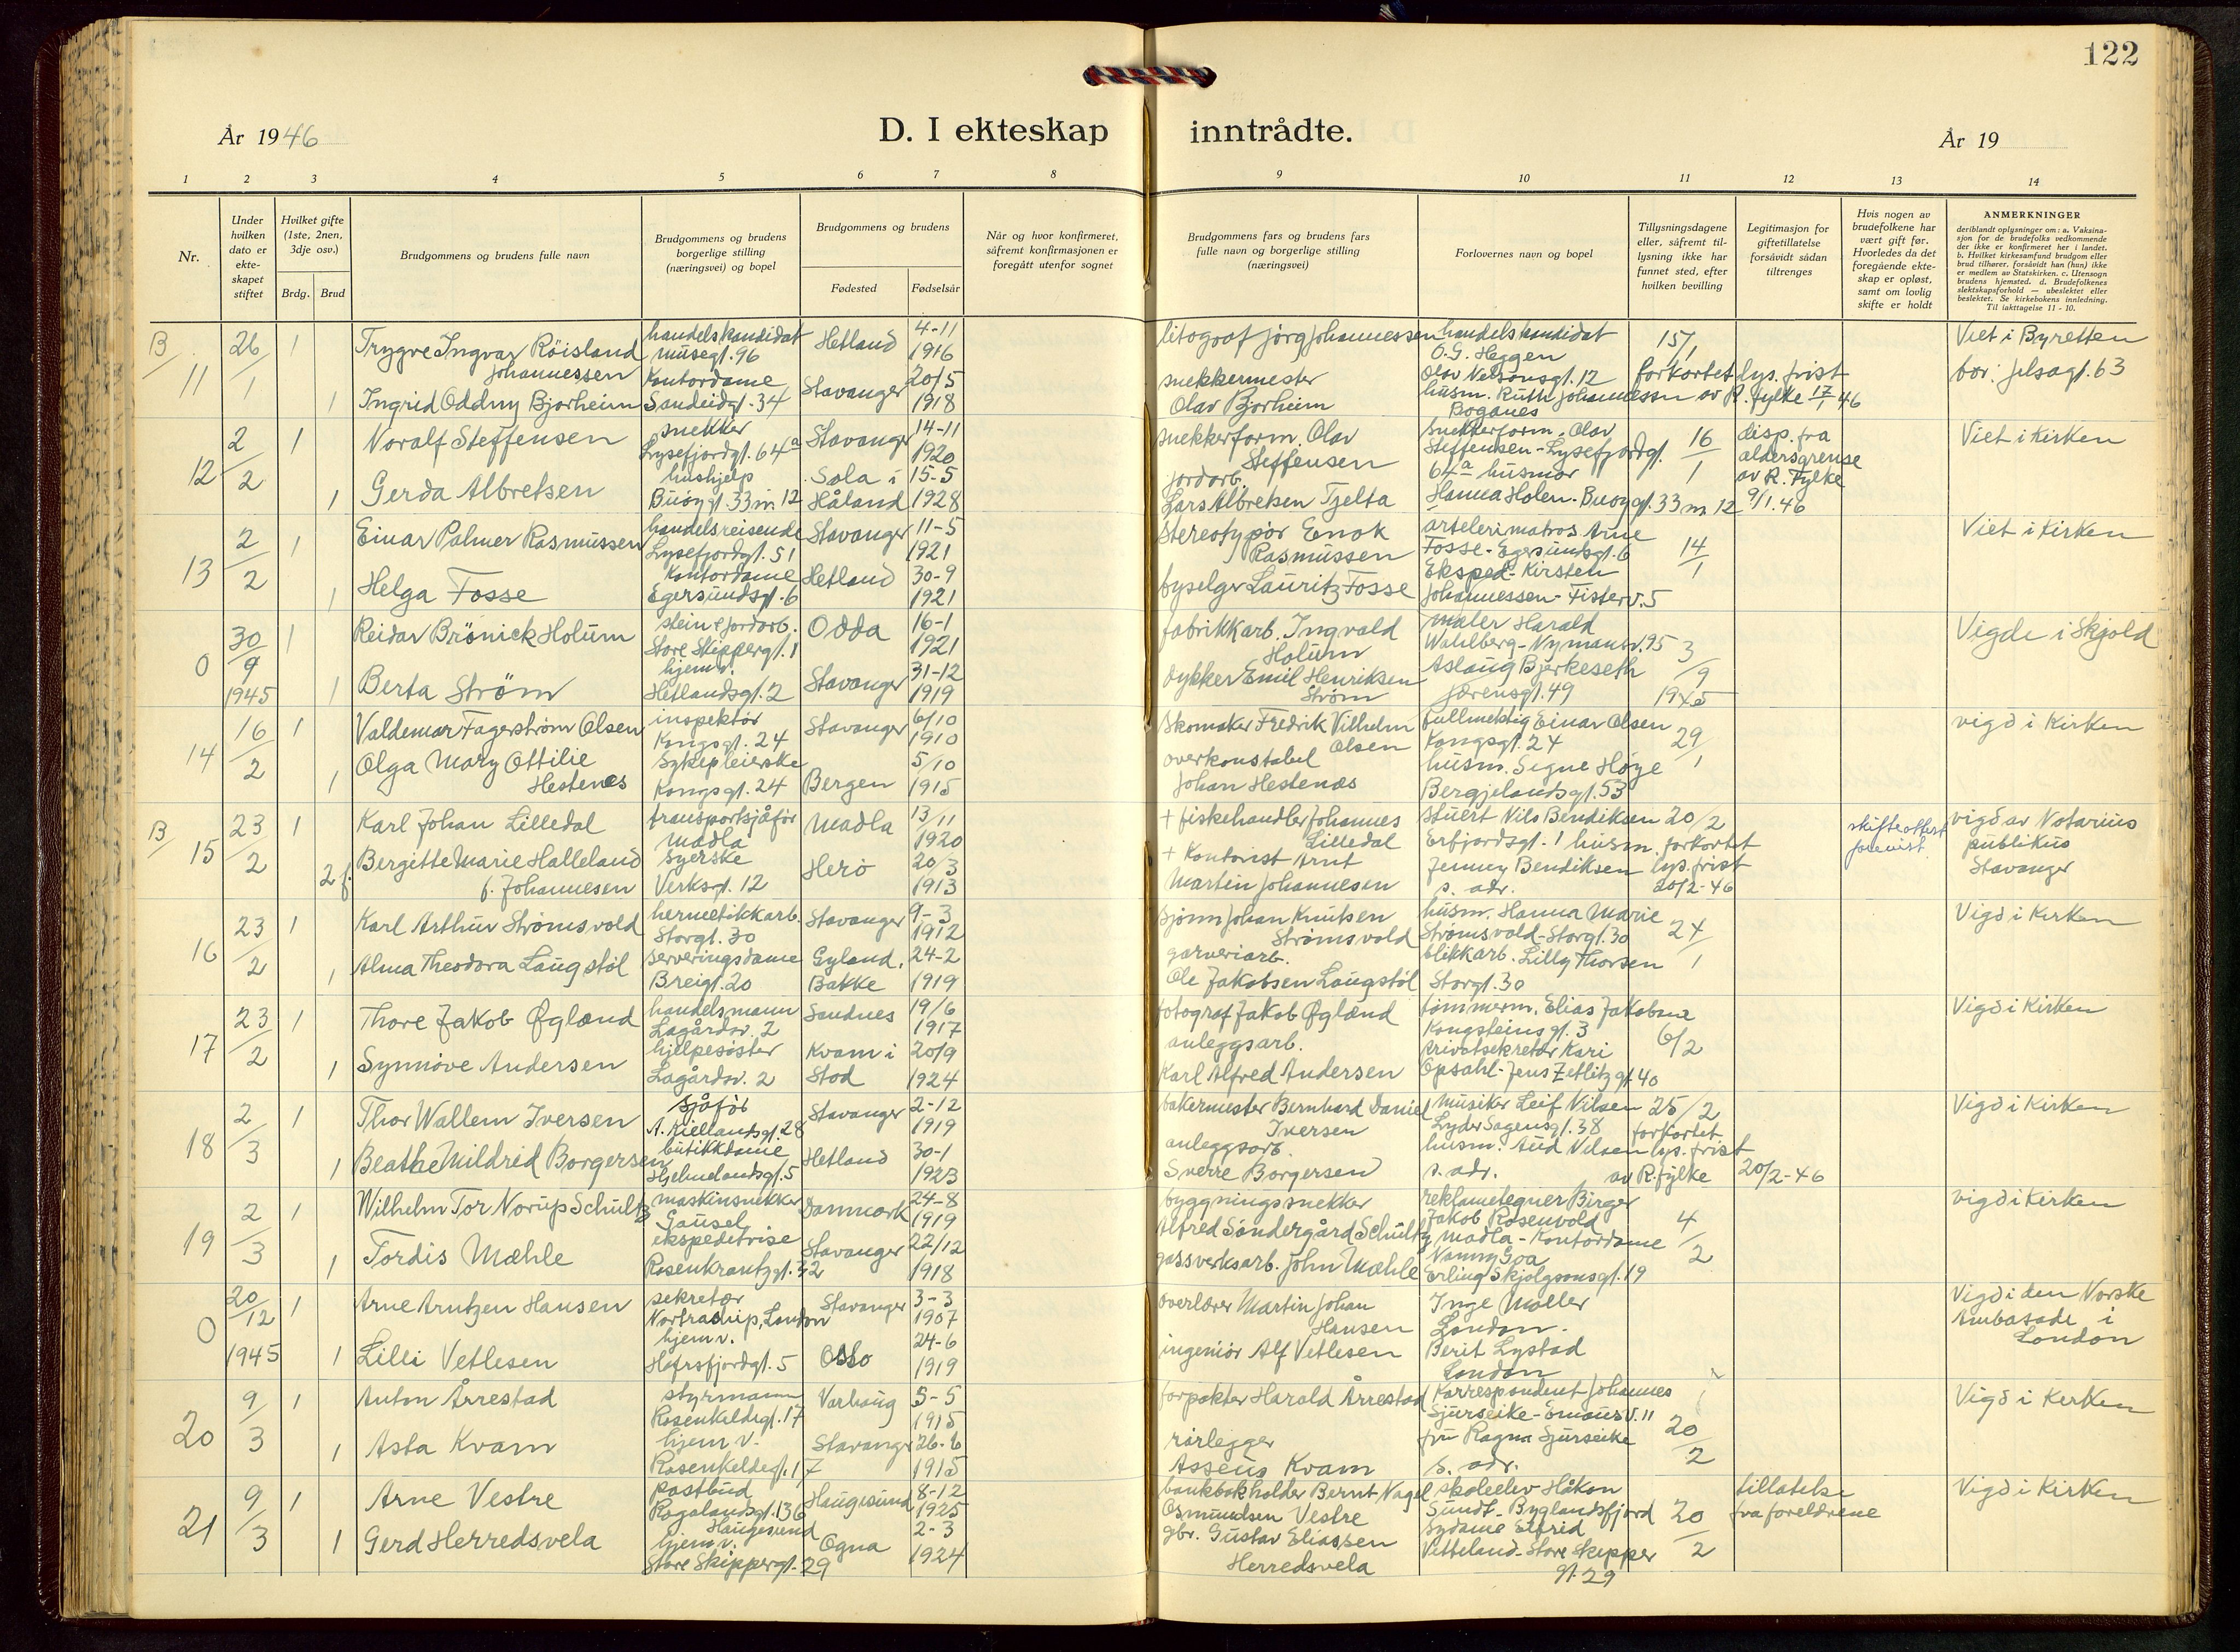 122
År 1946
D. I ekteskap inntrådte.
År 19
1 2 3 4 5 6 7 8 9 10 11 12 13 14
Nr.
Under hvilken dato er ekteskapet stiftet
Hvilket gifte (1ste, 2nen, 3dje osv.)
Brdg. Brud
Brudgommens og brudens fulle navn
Brudgommens og brudens borgerlige stilling (næringsvei) og bopel
Brudgommens og brudens
Fødested Fødselsår
Når og hvor konfirmeret, såfremt konfirmasjonen er foregått utenfor sognet
Brudgommens fars og brudens fars fulle navn og borgerlige stilling (næringsvei)
Forlovernes navn og bopel
Tillysningsdagene eller, såfremt tillysning ikke har funnet sted, efter hvilken bevilling
Legitimasjon for giftetillatelse forsåvidt sådan tiltrenges
Hvis nogen av brudefolkene har vært gift før. Hvorledes da det foregående ekteskap er opløst, samt om lovlig skifte er holdt
ANMERKNINGER
deriblandt oplysninger om: a. Vaksinasjon for de brudefolks vedkommende der ikke er konfirmeret her i landet. b. Hvilket kirkesamfund brudgom eller brud tilhører, forsåvidt han (hun) ikke er medlem av Statskirken. c. Utensogn brudens hjemsted. d. Brudefolkenes slektskapsforhold — ubeslektet eller beslektet. Se kirkebokens innledning. Til iakttagelse 11 - 10.
B/ 11 26/1 1 Trygve Ingvar Röisland Johannessen handelskandidat Musegt. 96 Hetland 4-11 1916 litograf Jörg Johannessen handelskandidat O.G. Heggen Olav Nelsonsgt. 12 15/1 Viet i Byretten
1 Ingrid Oddny Bjorheim Kontordame Sandeidgt. 34 Stavanger 20/5 1918 snekkermester Olav Bjorheim husm. Ruth Johannessen Boganes forkortet lys. frist av R. fylke 17/1 46 bor: Jelsagt. 63
12 2/2 1 Noralf Steffensen snekker Lysefjordgt. 64a Stavanger 14-11 1920 snekkerform. Olav Steffensen snekkerform. Olav Steffensen - Lysefjordgt. 64a 16/1 disp. fra aldersgrense av R. Fylke 9/1.46 Viet i Kirken
1 Gerda Albretsen hushjelp Buøygt. 33 m 12 Sola i Håland 15-5 1928 jordarb. Lars Albretsen Tjelta husmor Hanna Holen - Buøygt. 33 m 12
13 2/2 1 Einar Palmer Rasmussen handelsreisende Lysefjordgt. 51 Stavanger 11-5 1921 Stereotypör Enok Rasmussen artelerimatros Arne Fosse - Egersundsgt. 6 14/1 Viet i Kirken
1 Helga Fosse Kontordame Egersundsgt. 6 Hetland 30-9 1921 byselger Lauritz Fosse Eksped. Kirsten Johannessen - Fisterv. 5
0 30/9 1945 1 Reidar Brönick Holum stein & jordarb. Store Skippergt. 1 Odda 16-1 1921 fabrikkarb. Ingvald Holum maler Harald Wahlberg - Nymansv. 95 3/9 1945 Vigde i Skjold
1 Berta Ström hjem v. Hetlandsgt. 2 Stavanger 31-12 1919 dykker Emil Henriksen Ström Aslaug Bjerkeseth Jærensgt. 49
14 16/2 1 Valdemar Fagerström Olsen inspektör Kongsgt. 24 Stavanger 6/10 1910 Skomaker Fredrik Vilhelm Olsen fullmektig Einar Olsen Kongsgt. 24 29/1 vigd i Kirken
1 Olga Mary Ottilie Hestenes Sykepleierske Kongsgt. 24 Bergen 5/10 1915 overkonstabel Johan Hestenæs husm. Signe Höye Bergjelandsgt. 53
B/ 15 23/2 1 Karl Johan Lilledal transportsjåför Madla Madla 13/11 1920 + fiskehandler Johannes Lilledal stuert Nils Bendiksen Erfjordsgt. 1 20/2 forkortet lys. frist 20/2-46 skifteattest forevist. vigd av Notarius publikus Stavanger
2 f. Bergitte Marie Halleland f. Johannesen Syerske Verksgt. 12 Herö 20/3 1913 + Kontorist Arnt Martin Johannesen husm. Jenney Bendiksen s. adr.
16 23/2 1 Karl Arthur Strömsvold hermetikkarb. Storgt. 30 Stavanger 9-3 1912 sjömn Johan Knutsen Strömsvold husm. Hanna Marie Strömsvold - Storgt. 30 24/1 Vigd i Kirken
1 Alma Theodora Laugstöl serveringsdame Breigt. 20 Eyland, Bakke 24-2 1919 garveriarb. Ole Jakobsen Laugstöl blikkarb. Lilly Thorsen Storgt. 30
17 23/2 1 Thore Jakob Øglænd handelsmann Lagårdsv. 2 Sandnes 19/6 1917 fotograf Jakob Øglænd tömmerm. Elias Jakobsen Kongsteinsgt. 3 6/2 Vigd i Kirken
1 Synnöve Andersen hjelpesöster Lagårdsv. 2 Kvam i Stod 20/9 1924 anleggsarb. Karl Alfred Andersen privatsekretær Kari Opsahl - Jens Zetlitzgt. 40
18 2/3 1 Thor Wallem Iversen Sjåför A. Kiellandsgt. 28 Stavanger 2-12 1919 bakermester Bernhard Daniel Iversen musiker Leif Nilsen Lyder Sagensgt. 38 25/2 forkortet lys. frist av R. fylke 20/2-46 Vigd i Kirken
1 Beathe Mildrid Borgersen butikkdame Hjelmelandsgt. 5 Hetland 30-1 1923 anleggsarb. Sverre Borgersen husm. Aud Nilsen s. adr.
19 2/3 1 Wilhelm Tor Norup Schultz maskinsnekker Gausel Danmark 24-8 1919 bygningssnekker Alfred Söndergård Schultz reklametegner Birger Jakob Rosenvold Madla 4/2 vigd i Kirken
1 Tordis Mæhle ekspeditrise Rosenkrantzgt. 32 Stavanger 22/12 1918 gassverksarb. John Mæhle Kontordame Nanny Goa Erling Skjalgsonsgt. 19
0 20/12 1945 1 Arne Arntzen Hansen sekretær Nortraship, London Stavanger 3-3 1907 overlærer Martin Johan Hansen Inge Möller London. Vigd i den Norske Ambasade i London
1 Lilli Vetlesen hjem v. Hafrsfjordgt. 5 Oslo 24-6 1919 ingeniör Alf Vetlesen Berit Lystad London
20 9/3 1 Anton Årrestad styrmann Rosenkildegt. 17 Varhaug 5-5 1915 forpakter Harald Årrestad Korrespondent Johannes Sjurseike - Emausv. 11 20/2 Vigd i Kirken
1 Asta Kvam hjem v. Rosenkildegt. 17 Stavanger 26-6 1915 rörlegger Asseus Kvam fru Ragna Sjurseike s. adr.
21 9/3 1 Arne Vestre postbud Rogalandsgt. 136 Haugesund Haugesund 8-12 1925 bankbokholder Bernt Nagel Osmundsen Vestre skoleelev Håkon Sundt - Byglandsfjord 20/2 tillatelse fra foreldrene Vigd i Kirken
1 Gerd Herredsvela hjem v. Store Skippergt. 29 Ogna 2-3 1924 gbr. Gustav Eliassen Herredsvela Sydame Elfrid Vetteland - Store Skipper gt. 29